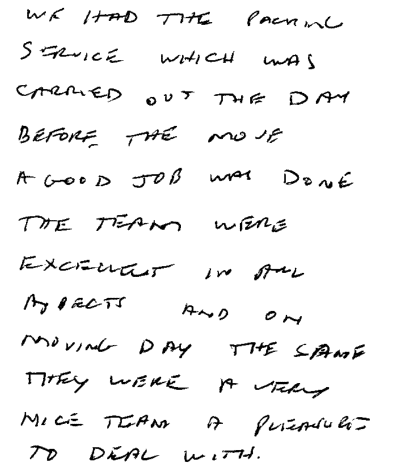 WE HAD THE PACKING
SERVICE WHICH WAS
CARRIED OUT THE DAY
BEFORE, THE MOVE
A GOOD JOB WAS DONE
THE TEAM WERE
EXCELLENT IN ALL
ASPECTS AND ON
MOVING DAY THE SAME
THEY WERE A VERY
NICE TEAM A PLEASURE
TO DEAL WITH.